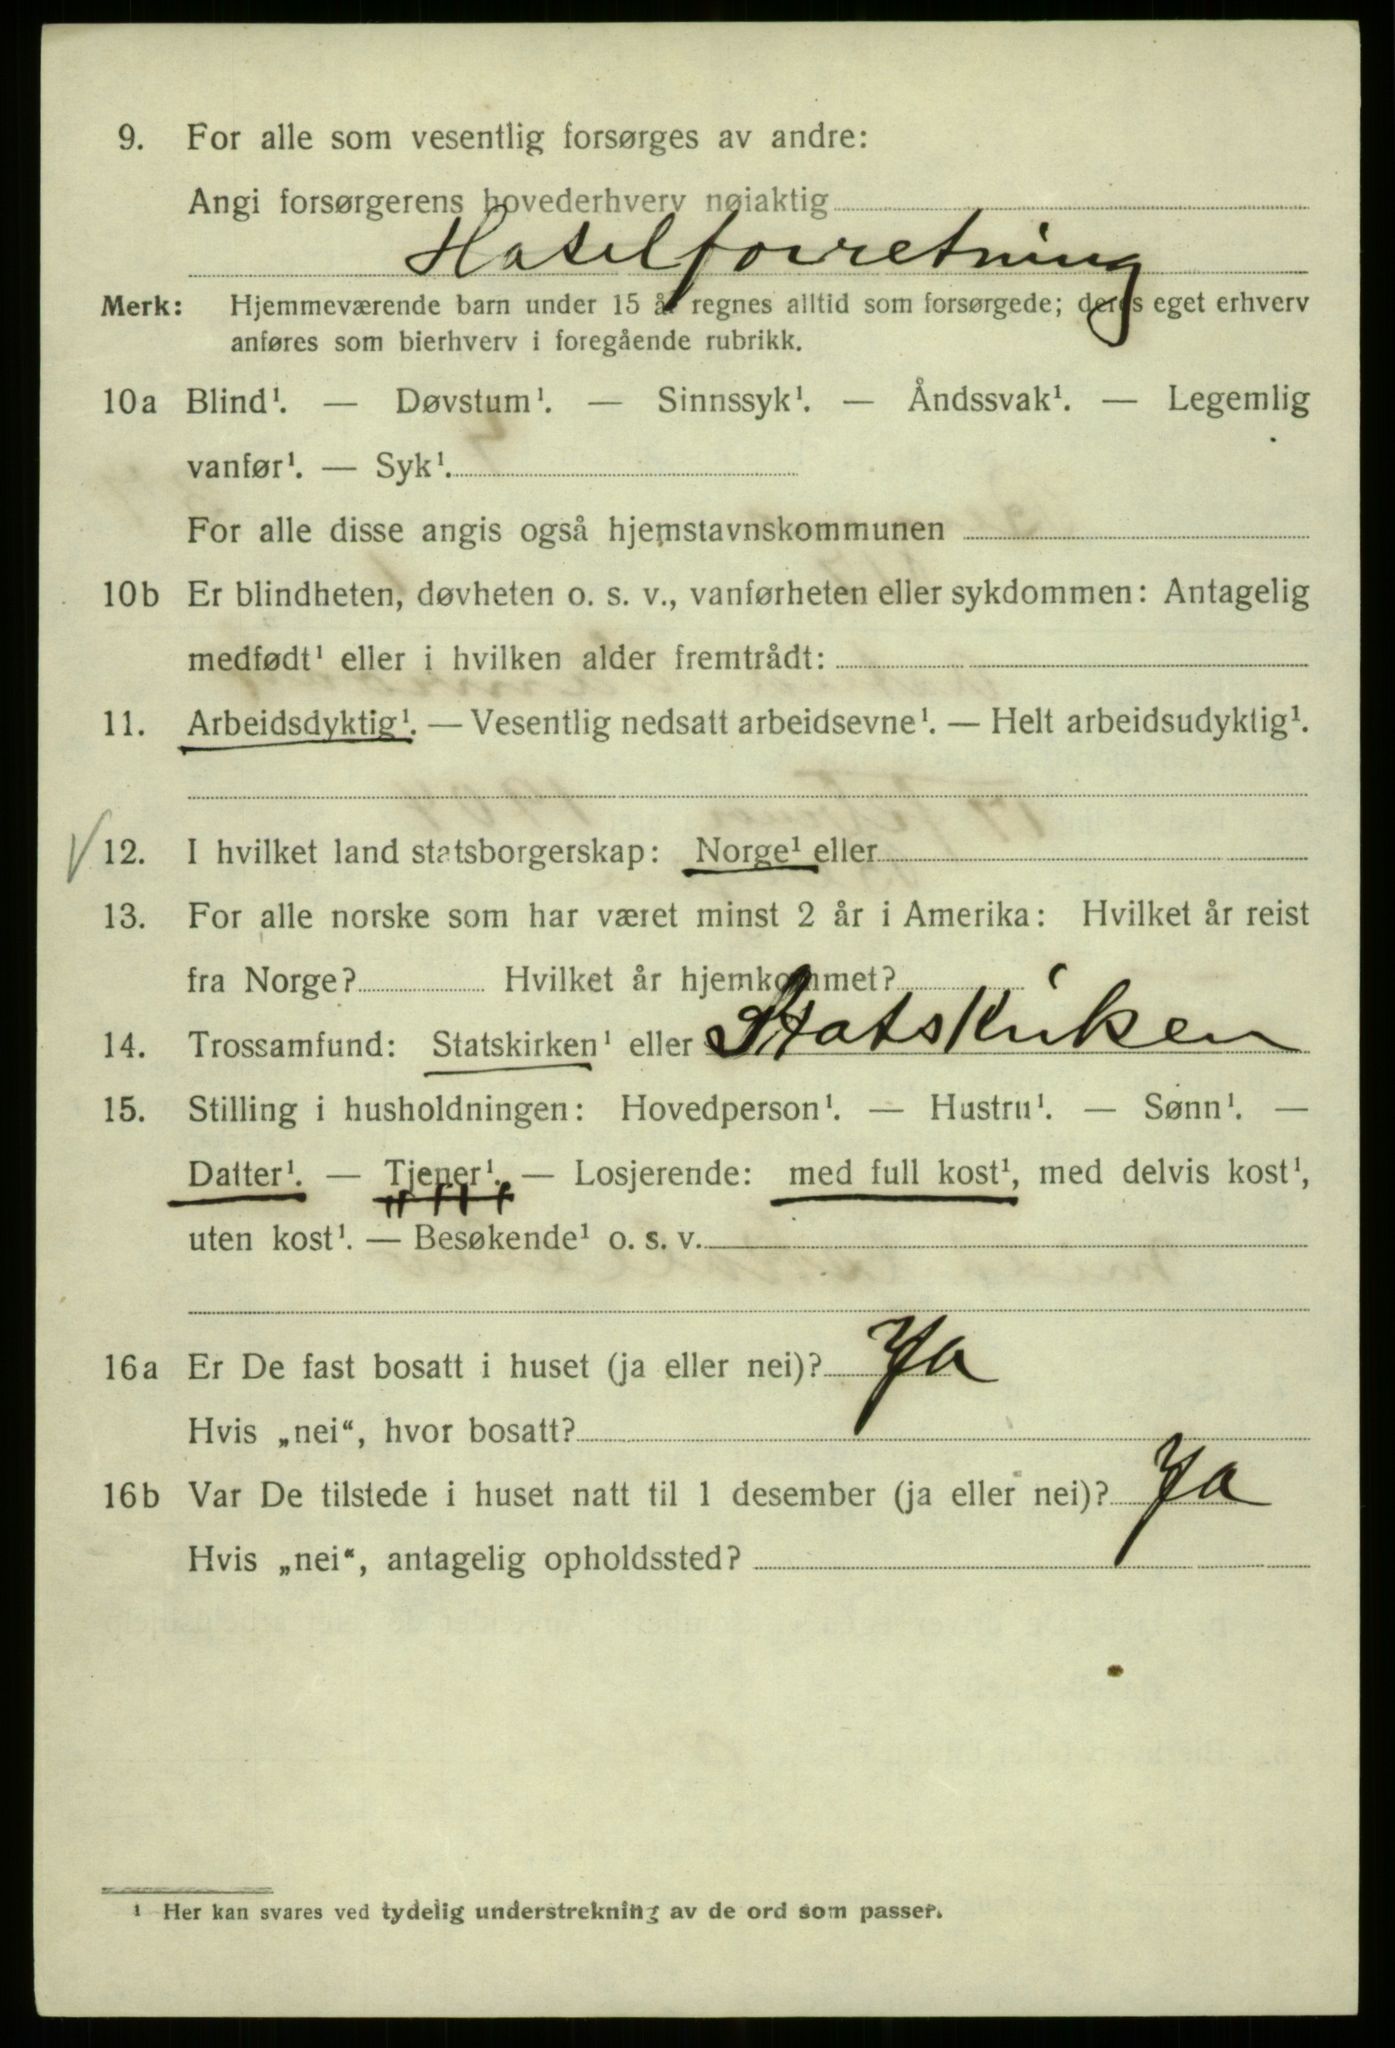 9. For alle som vesentlig forsørges av andre:
Angi forsørgerens hovederhverv nøiaktig
Hotelforretning
Merk: Hjemmeværende barn under 15 år regnes alltid som forsørgede; deres eget erhverv
anføres som bierhverv i foregående rubrikk.
10a Blind¹. — Døvstum¹. — Sinnssyk¹. — Åndssvak¹. — Legemlig
vanfør¹. — Syk¹.
For alle disse angis også hjemstavnskommunen
10b Er blindheten, døvheten o. s. v., vanførheten eller sykdommen: Antagelig
medfødt¹ eller i hvilken alder fremtrådt:
11. Arbeidsdyktig¹. — Vesentlig nedsatt arbeidsevne¹. — Helt arbeidsudyktig¹.
12. I hvilket land statsborgerskap: Norge¹ eller
13. For alle norske som har været minst 2 år i Amerika: Hvilket år reist
fra Norge? Hvilket år hjemkommet?
14. Trossamfund: Statskirken¹ eller Statskirken
15. Stilling i husholdningen: Hovedperson¹. — Hustru¹. — Sønn¹. —
Datter¹. — Tjener¹. — Losjerende: med full kost¹, med delvis kost¹,
uten kost¹. — Besøkende¹ o. s. v.
16a Er De fast bosatt i huset (ja eller nei)? Ja
Hvis „nei“, hvor bosatt?
16b Var De tilstede i huset natt til 1 desember (ja eller nei)? Ja
Hvis „nei“, antagelig opholdssted?
¹ Her kan svares ved tydelig understrekning av de ord som passer.